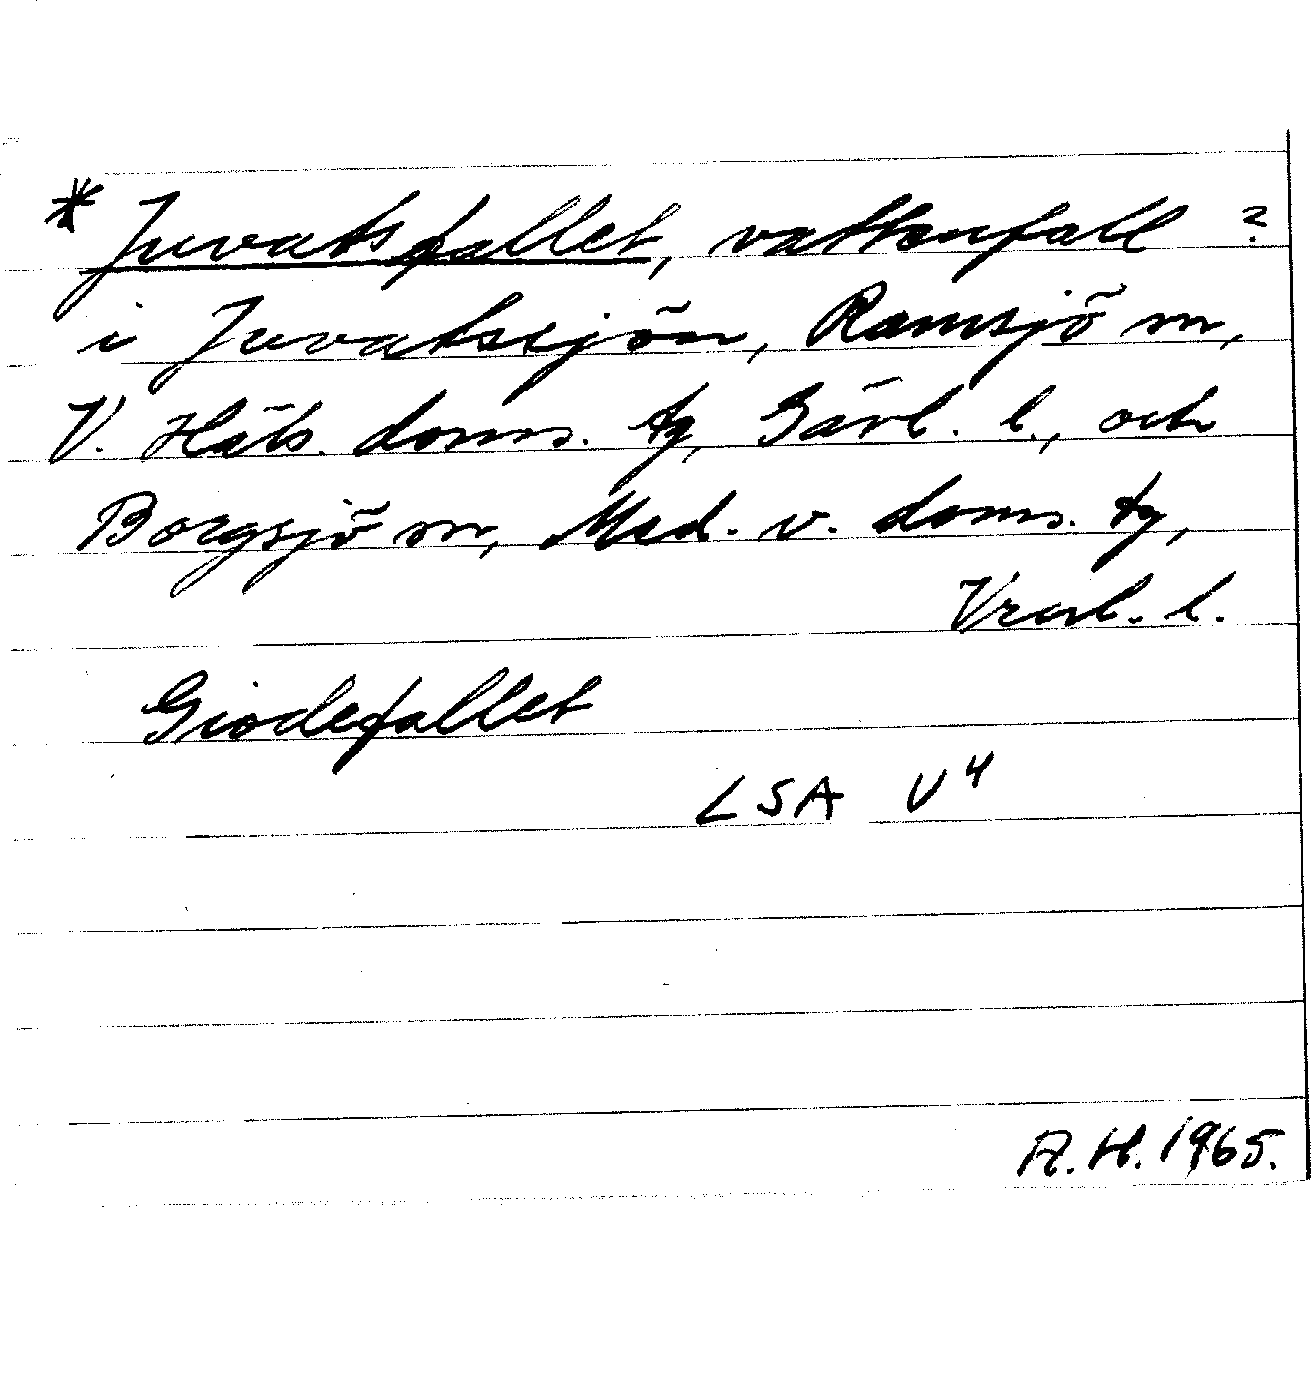 * Juvatsfallet, vattenfall ?
i Juvatssjön, Ramsjö sn,
V. Häls. doms. tg, Gävl. l., och
Borgsjö sn, Med. v. doms. tg,
Vrnl. l.
Giodefallet
LSA V4
A. H. 1965.